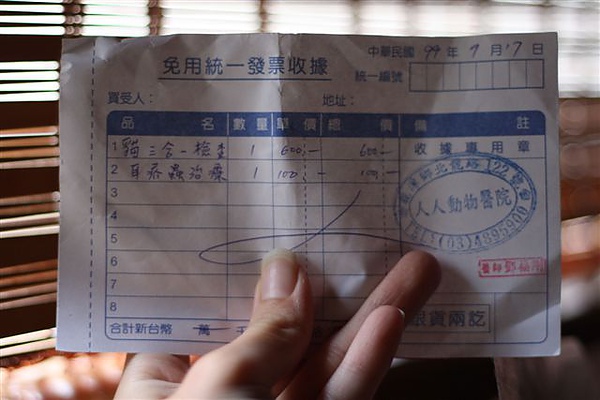 中華民國 99 年 9 月 17 日
免用統一發票收據
統一編號
買受人： 地址：
品 名 數量 單 價 總 價 備 註
1 貓三合一檢查 1 600.- 600.- 收據專用章
2 耳疥蟲治療 1 100.- 100.-
3
4
5
6
7
8
人人動物醫院
TEL:(03)4895900
銀貨兩訖
合計新台幣 萬